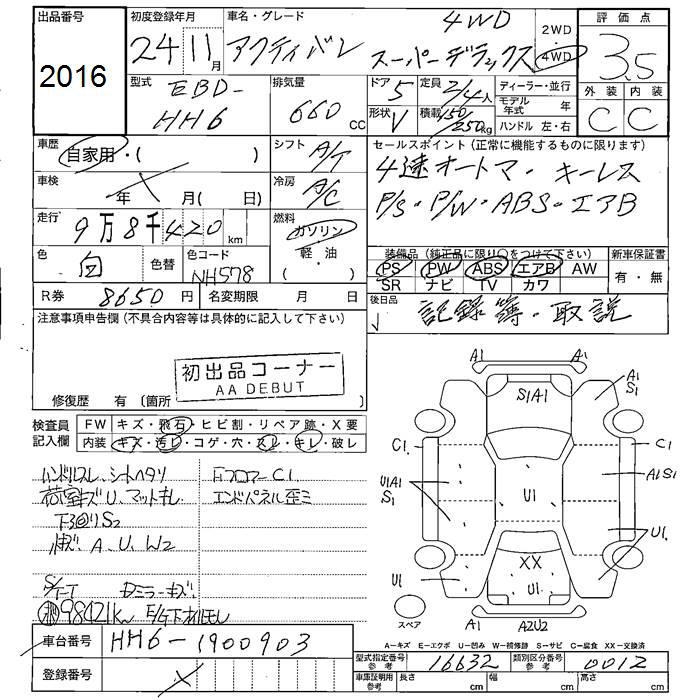 出品番号 初度登録年月 車名・グレード 4WD 2WD 評価点
2016 24 11月 アクティバン スーパーデラックス 4WD 3.5
型式 排気量 ドア 5 定員 2/4人 ディーラー・並行 外装 内装
EBD- HH6 660 CC 形状 V 積載 150/250kg モデル年式 年 C C
ハンドル 左・右
車歴 自家用・( ) シフト A/T セールスポイント (正常に機能するものに限ります)
4速オートマ・キーレス
車検 年 月( 日) 冷房 A/C
P/S・P/W・ABS・エアB
走行 9万8千420 km 燃料 ガソリン 軽・油 ( )
色 白 色替 色コード NH578
装備品 (純正品に限り〇をつけて下さい) 新車保証書
PS PW ABS エアB AW 有・無
SR ナビ TV カワ
R券 8650円 名変期限 月 日
後日品 記録簿・取説
注意事項申告欄 (不具合内容等は具体的に記入して下さい)
初出品コーナー
AA DEBUT
修復歴 有 (箇所 )
検査員記入欄 FW キズ・飛石・ヒビ割・リペア跡・X要
内装 キズ・汚レ・コゲ・穴・スレ・キレ・破レ
ハンドルスレ、シートヘタリ
荷室キズU、マットキレ エンドパネル歪ミ
下回りS2
A、U、W2
98421km
A1 A1
S1A1
A1
S1
C1 C1
U1A1
S1
A1S1
U1
U1
XX
U1
U1
A1 A2U2
スペア
A-キズ E-エクボ U-凹み W-補修跡 S-サビ C-腐食 XX-交換済
車台番号 HH6-1900903
型式指定番号 参考 16632 類別区分番号 参考 0012
登録番号
車庫証明用 参考 長さ cm 幅 cm 高さ cm